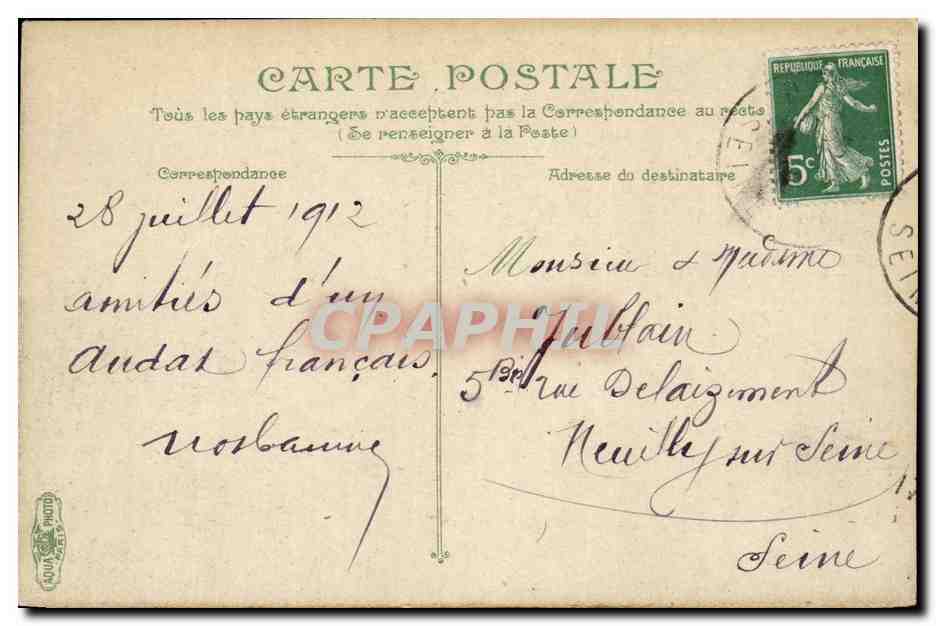 CARTE POSTALE
Tous les pays étrangers n'acceptent pas la Correspondance au recto
(Se renseigner à la Poste)
Correspondance
28 juillet 1912
amitiés d'un
français.
Adresse du destinataire
Monsieur & Madame
Jublain
5 Bis rue Delaizement
Neuilly sur Seine
Seine
REPUBLIQUE FRANÇAISE
5c
POSTES
SEI
SEIN
CPAPHIL
AQUA PHOTO
PARIS